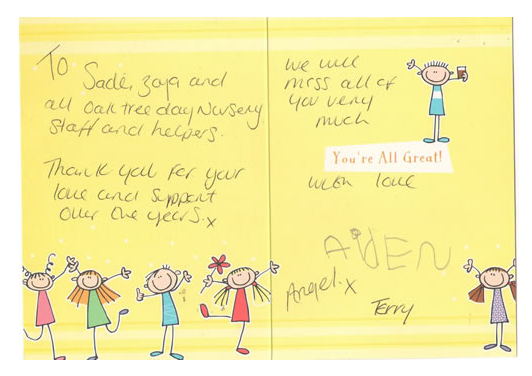 To
Sadé, Zoja and
all Oak tree day Nursery
staff and helpers.
Thank you for your
love and support
over the years. x
We will
miss all of
you very
much
You're All Great!
with love
AIDEN
Angel. x
Terry